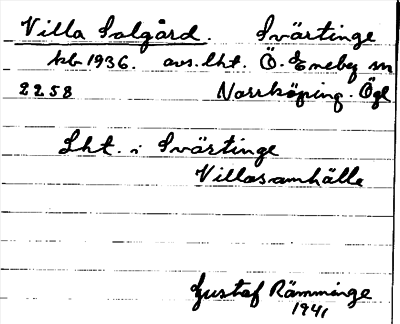 Villa Solgård. Svärtinge
kb 1936. avs. lht. Ö. Eneby sn
2258 Norrköping. Ögl
Lht. i Svärtinge
Villasamhälle
Gustaf Rämminge
1941